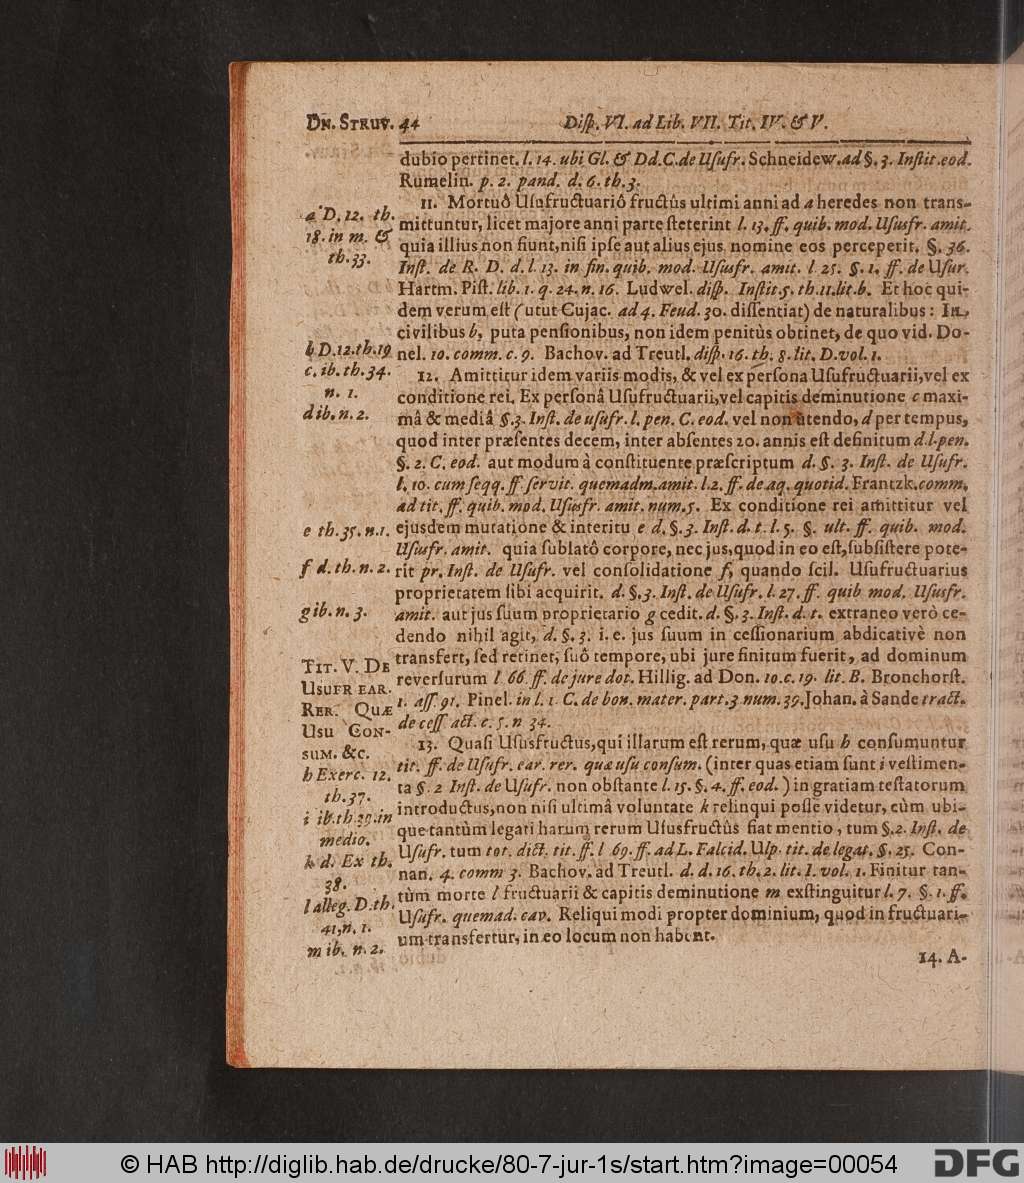 DN. STRUV. 44 Diſp. VI. ad Lib. VII. Tit. IV. & V.
dubio pertinet. l. 14. ubi Gl. & Dd. C. de Uſufr. Schneidew. ad §. 3. Inſtit. eod.
Rumelin. p. 2. pand. d. 6. th. 3.
11. Mortuô Uſufructuariô fructûs ultimi anni ad a heredes non trans-
mittuntur, licet majore anni parte ſteterint l. 13. ff. quib. mod. Uſusfr. amit.
quia illius non fiunt, niſi ipſe aut alius ejus nomine eos perceperit. §. 36.
Inſt. de R. D. d. l. 13. in fin. quib. mod. Uſusfr. amit. l 25. §. 1. ff. de Uſur.
Hartm. Piſt. lib. 1. q. 24. n. 16. Ludwel. diſp. Inſtit. 5. th. 11. lit. b. Et hoc qui-
dem verum eſt (utut Cujac. ad 4. Feud. 30. diſſentiat) de naturalibus: In
civilibus b, puta penſionibus, non idem penitùs obtinet, de quo vid. Do-
nel. 10. comm. c. 9. Bachov. ad Treutl. diſp. 16. th. 8. lit. D. vol. 1.
12. Amittitur idem variis modis, & vel ex perſona Uſufructuarii, vel ex
conditione rei. Ex perſonâ Uſufructuarii, vel capitis deminutione c maxi-
mâ & mediâ §. 3. Inſt. de uſufr. l. pen. C. eod. vel non utendo, d per tempus,
quod inter præſentes decem, inter abſentes 20. annis eſt definitum d. l. pen.
§. 2. C. eod. aut modum à conſtituente præſcriptum d. §. 3. Inſt. de Uſufr.
l. 10. cum ſeqq. ff ſervit. quemadm. amit. l. 2. ff. de aq. quotid. Frantzk. comm.
ad tit. ff. quib. mod. Uſusfr. amit. num. 5. Ex conditione rei amittitur vel
ejusdem mutatione & interitu e d. §. 3. Inſt. d. t. l. 5. §. ult. ff. quib. mod.
Uſusfr. amit. quia ſublatô corpore, nec jus, quod in eo eſt, ſubſiſtere pote-
rit pr. Inſt. de Uſufr. vel conſolidatione f, quando ſcil. Uſufructuarius
proprietatem ſibi acquirit. d. §. 3. Inſt. de Uſufr. l. 27. ff. quib mod. Uſusfr.
amit. aut jus ſuum proprietario g cedit. d. §. 3. Inſt. d. t. extraneo verò ce-
dendo nihil agit, d. §. 3. i. e. jus ſuum in ceſſionarium abdicativè non
transfert, ſed retinet, ſuô tempore, ubi jure finitum fuerit, ad dominum
reverſurum l 66. ff. de jure dot. Hillig. ad Don. 10. c. 19. lit. B. Bronchorſt.
1. aſſ. 91. Pinel. in l. 1. C. de bon. mater. part. 3 num. 39. Johan. à Sande tract.
de ceſſ act. c. 5. n 34.
13. Quaſi Uſusfructus, qui illarum eſt rerum, quæ uſu h conſumuntur
tit. ff. de Uſufr. ear. rer. quæ uſu conſum. (inter quas etiam ſunt i veſtimen-
ta §. 2 Inſt. de Uſufr. non obſtante l. 15. §. 4. ff. eod.) in gratiam teſtatorum
introductus, non niſi ultimâ voluntate k relinqui poſſe videtur, cùm ubi-
que tantùm legati harum rerum Uſusfructûs fiat mentio, tum §. 2. Inſt. de
Uſufr. tum tot. dict. tit. ff. l 69. ff. ad L. Falcid. Ulp. tit. de legat. §. 25. Con-
nan. 4. comm 3. Bachov. ad Treutl. d. d. 16. th. 2. lit. I. vol. 1. Finitur tan-
tùm morte l fructuarii & capitis deminutione m exſtinguitur l. 7. §. 1. ff.
Uſufr. quemad. cav. Reliqui modi propter dominium, quod in fructuari-
um transfertur, in eo locum non habent.
14. A-
a D. 12. th.
18. in m. &
th. 33.
b D. 12. th. 19
c. ib. th. 34.
n. 1.
d ib. n. 2.
e th. 35. n. 1.
f d. th. n. 2.
g ib. n. 3.
TIT. V. DE
USUFR EAR.
RER. QUÆ
USU CON-
SUM. &c.
h Exerc. 12.
th. 37.
i ib. th. 39. in
medio.
k d. Ex th.
38.
l alleg. D. th.
41, n. 1.
m ib. n. 2.
© HAB http://diglib.hab.de/drucke/80-7-jur-1s/start.htm?image=00054
DFG